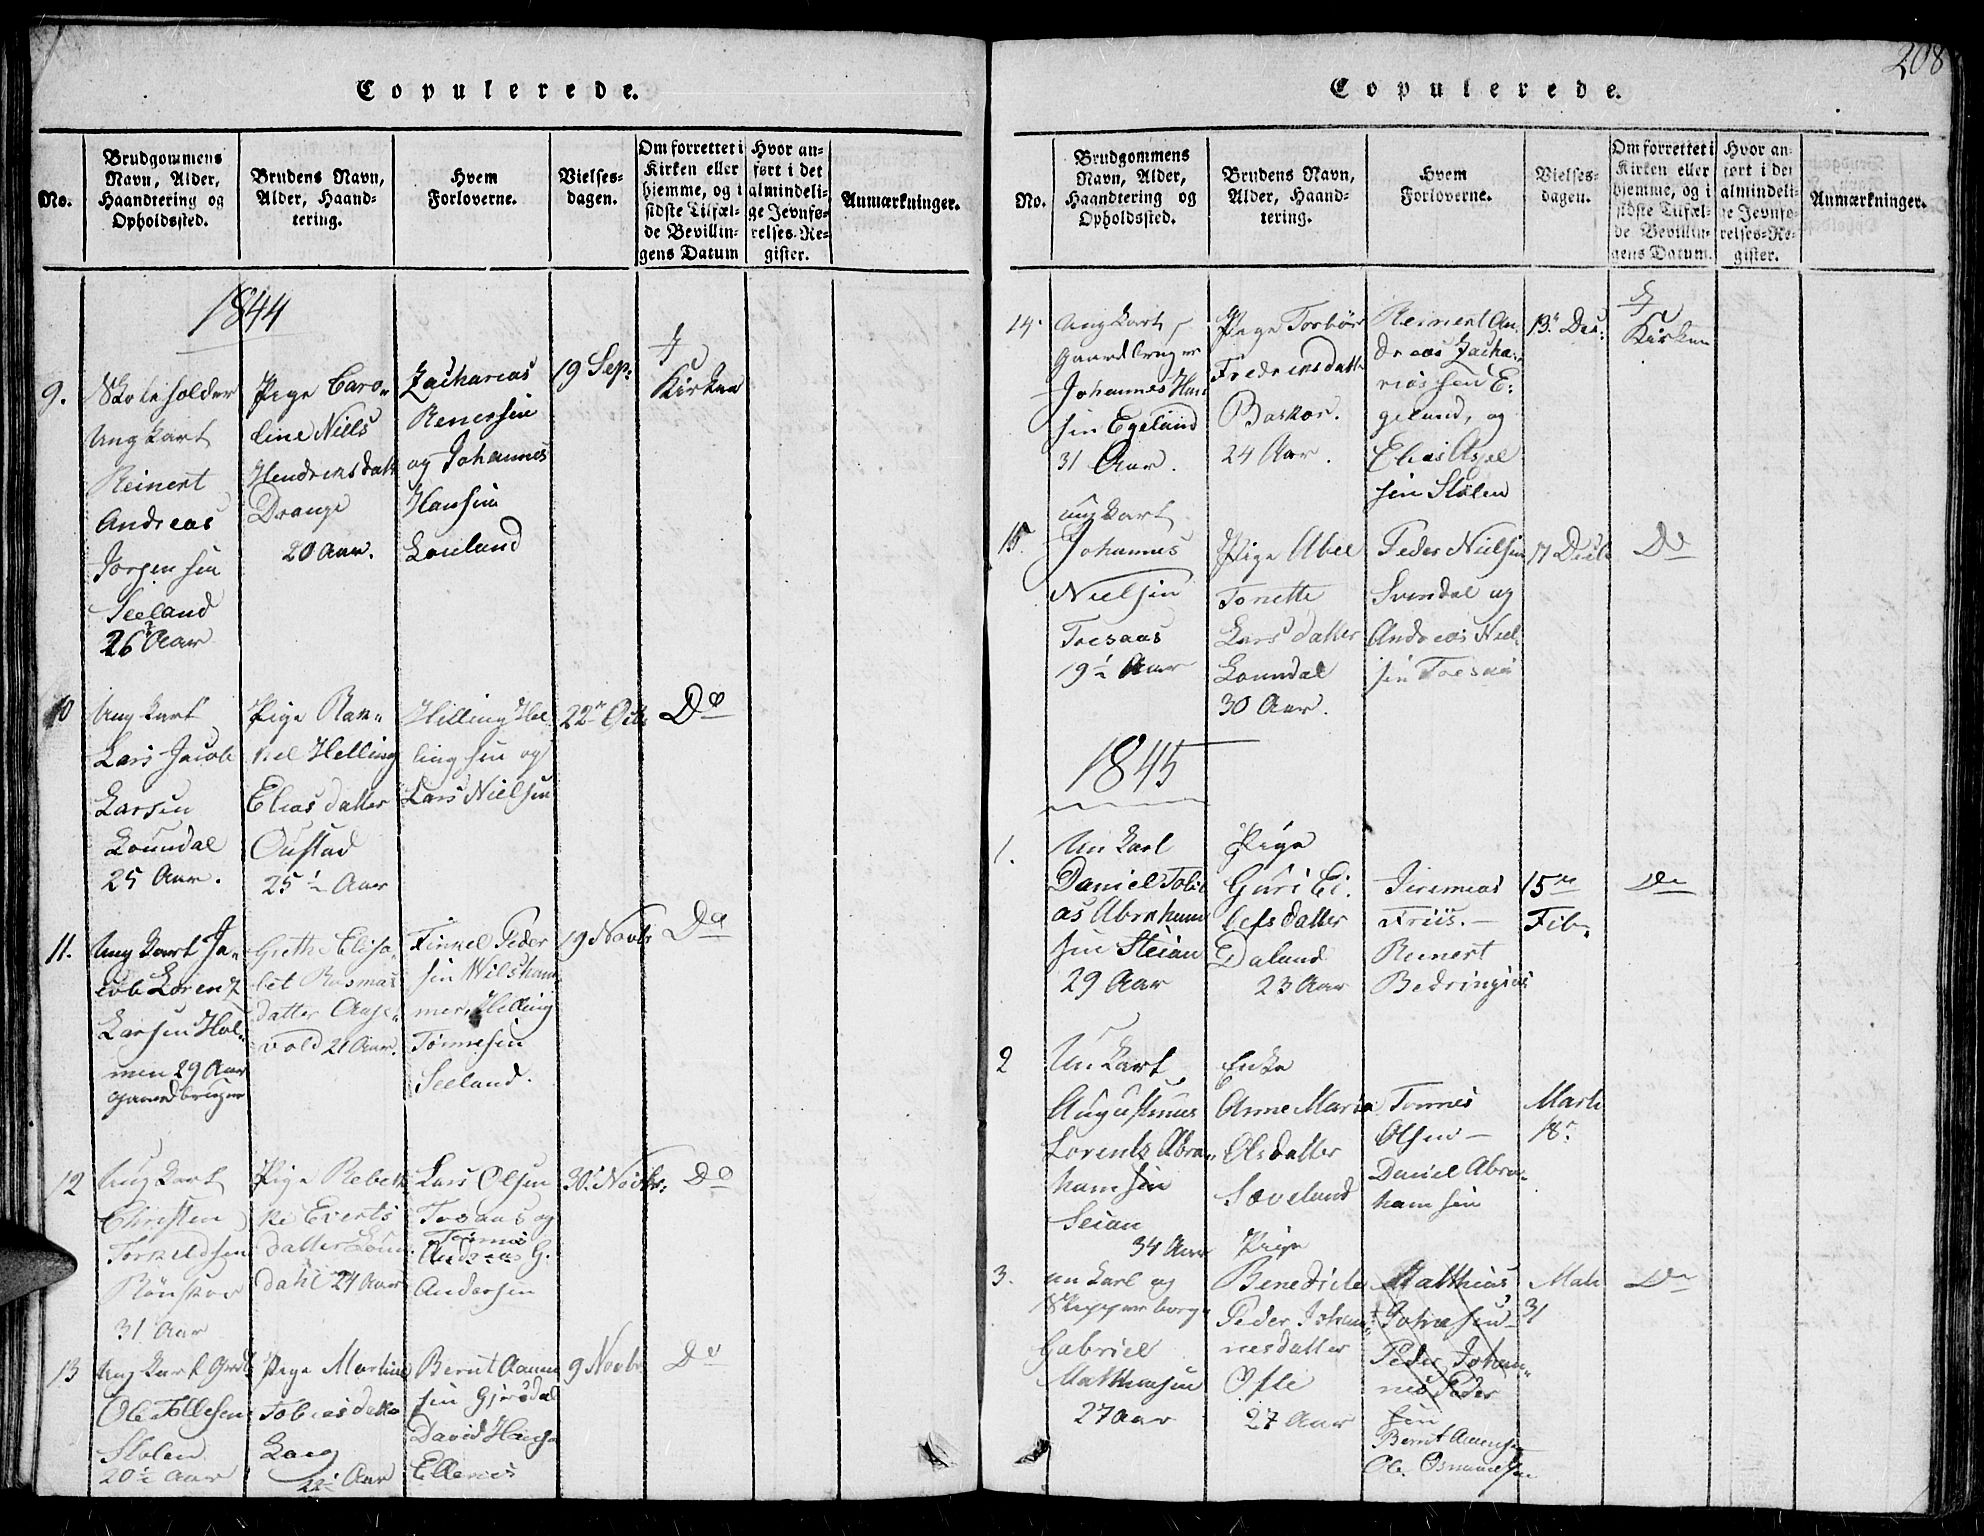 Copulerede.
No.
Brudgommens
Navn, Alder,
Haandtering og
Opholdssted.
Brudens Navn,
Alder, Haand-
tering.
Hvem
Forloverne.
Vielses-
dagen.
Om forrettet i
Kirken eller
hjemme, og i
sidste Tilfæl-
de Bevillin-
gens Datum
Hvor an-
ført i det
almindeli-
ge Jevnfø-
relses-Re-
gister.
Anmærkninger.
1844
9.
Ungkarl
Reinert
Andreas
Jørgensen
Seeland
26 Aar
Pige Caro-
line Niels
Hendriksdatt
Drange
20 Aar.
Zacharias
Renersen
og Johannes
Hansen
19 Sep.
i
Kirken
10
Ungkarl
Lars Jacob
Larsen
Loundal
25 Aar.
Pige Ra
kel Helling
Elias datter
Oustad
25 ½ Aar
Helling Hel
lingsen og
Lars Nielsen
22 Octb
Do
11.
Ungkarl Ja-
cob Lorenz
Larsen Hol-
men 29 Aar
gaardbruger
Grethe Elisa-
bet Rasmus
datter
vold 21 Aar.
Tinkel Peder
sen Wilsham
mer, Helling
Tønnesen
Seeland.
19 Novbr
Do
12
Ungkarl
Christen
Torkeldsen
Rønskor
31 Aar
Pige Rebek
ke Everts
datter Loun
dahl 24 Aar
Lars Olsen
Tosaas og
Tønnes
Andreas G.
Andersen
30. Novbr.
Do
13
Ungkarl
Ole Tollesen
Stolen
20½ Aar
Pige Martine
Tobiasdatte
Aar
Bernt Aanen
sen Gjersdal
David
9 Novbr
Do
208
Copulerede.
No.
Brudgommens
Navn, Alder,
Haandtering og
Opholdssted.
Brudens Navn,
Alder, Haand-
tering.
Hvem
Forloverne.
Vielses-
dagen.
Om forrettet i
Kirken eller
hjemme, og i
sidste Tilfæl-
de Bevillin-
gens Datum.
Hvor an-
ført i det
almindeli-
ge Jevnfø-
relses-Re-
gister.
Anmærkninger.
14.
Ungkarl
Gaardbruger
Johannes Han
sen Egeland
31 Aar.
Pige Torbør
Fredriksdatt
Baskor.
24 Aar.
Reinert An
dreas Zacha-
riassen E-
geland, og
Elias Axel
sen Stølen
13. Dec.
i
Kirken
15.
ungkarl
Johannes
Nielsen
Tosaas
19½ Aar
Pige Abel
Tonette
Larsdatter
Loundal
30 Aar.
Peder Nielsen
Svendal og
Andreas Niel
sen Tosaas
17 Decb
Do
1845
1.
Un karl
Daniel Tobi
as Abraham
sen Steian
29 Aar
Pige
Guri Ei-
lefsdatter
Daland
23 Aar
Jeremias
Friis. —
Reinert
15
Feb.
Do
2
Un karl
Augustinus
Lorentz Abra-
hamsen
Seian
34 Aar
Enke
Anne Maria
Olsdatter
Sæveland
Tønnes
Olsen —
Daniel Abra-
hamsen
Marts
18.
3.
un karl og
Skipperborg
Gabriel
Mathiasen
27 Aar
Pige
Benedicte
Peder Johan-
nesdatter
Ofte
27 Aar
Matthias
Johnsen
Peder Johan-
nes Peder
sen
Bernt Aanensen
Ole Osmundsen
31
Do